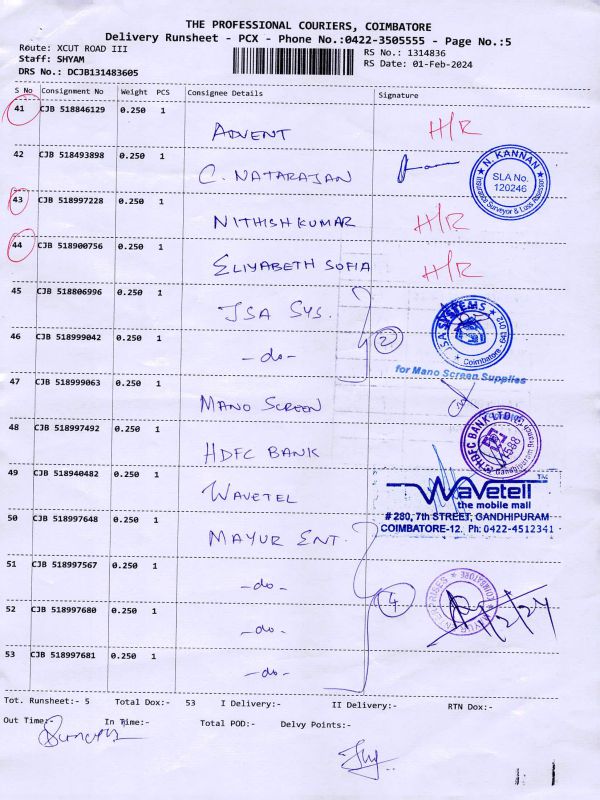 THE PROFESSIONAL COURIERS, COIMBATORE
Delivery Runsheet - PCX - Phone No.:0422-3505555 - Page No.:5
Route: XCUT ROAD III
RS No.: 1314836
Staff: SHYAM
RS Date: 01-Feb-2024
DRS No.: DCJB131483605
S No Consignment No Weight PCS Consignee Details Signature
41 CJB 518846129 0.250 1
ADVENT H/R
42 CJB 518493898 0.250 1
C. NATARAJAN
N. KANNAN
SLA No.
120246
Insurance Surveyor & Loss Assessor
43 CJB 518997228 0.250 1
NITHISH KUMAR H/R
44 CJB 518900756 0.250 1
ELIYABETH SOFIA H/R
45 CJB 518806996 0.250 1
JSA SYS.
46 CJB 518999042 0.250 1
-do- 2
JSA SYSTEMS
Coimbatore - 641 012
for Mano Screen Supplies
47 CJB 518999063 0.250 1
MANO SCREEN
48 CJB 518997492 0.250 1
HDFC BANK
HDFC BANK LTD
Gandhipuram Branch
49 CJB 518940482 0.250 1
WAVETEL
WaveTell TM
the mobile mall
# 280, 7th STREET, GANDHIPURAM
COIMBATORE-12. Ph: 0422-4512341
50 CJB 518997648 0.250 1
MAYUR ENT.
51 CJB 518997567 0.250 1
-do- 4
COIMBATORE
MAYUR ENTERPRISES
1/2/24
52 CJB 518997680 0.250 1
-do-
53 CJB 518997681 0.250 1
-do-
Tot. Runsheet:- 5 Total Dox:- 53 I Delivery:- II Delivery:- RTN Dox:-
Out Time:- In Time:- Total POD:- Delvy Points:-